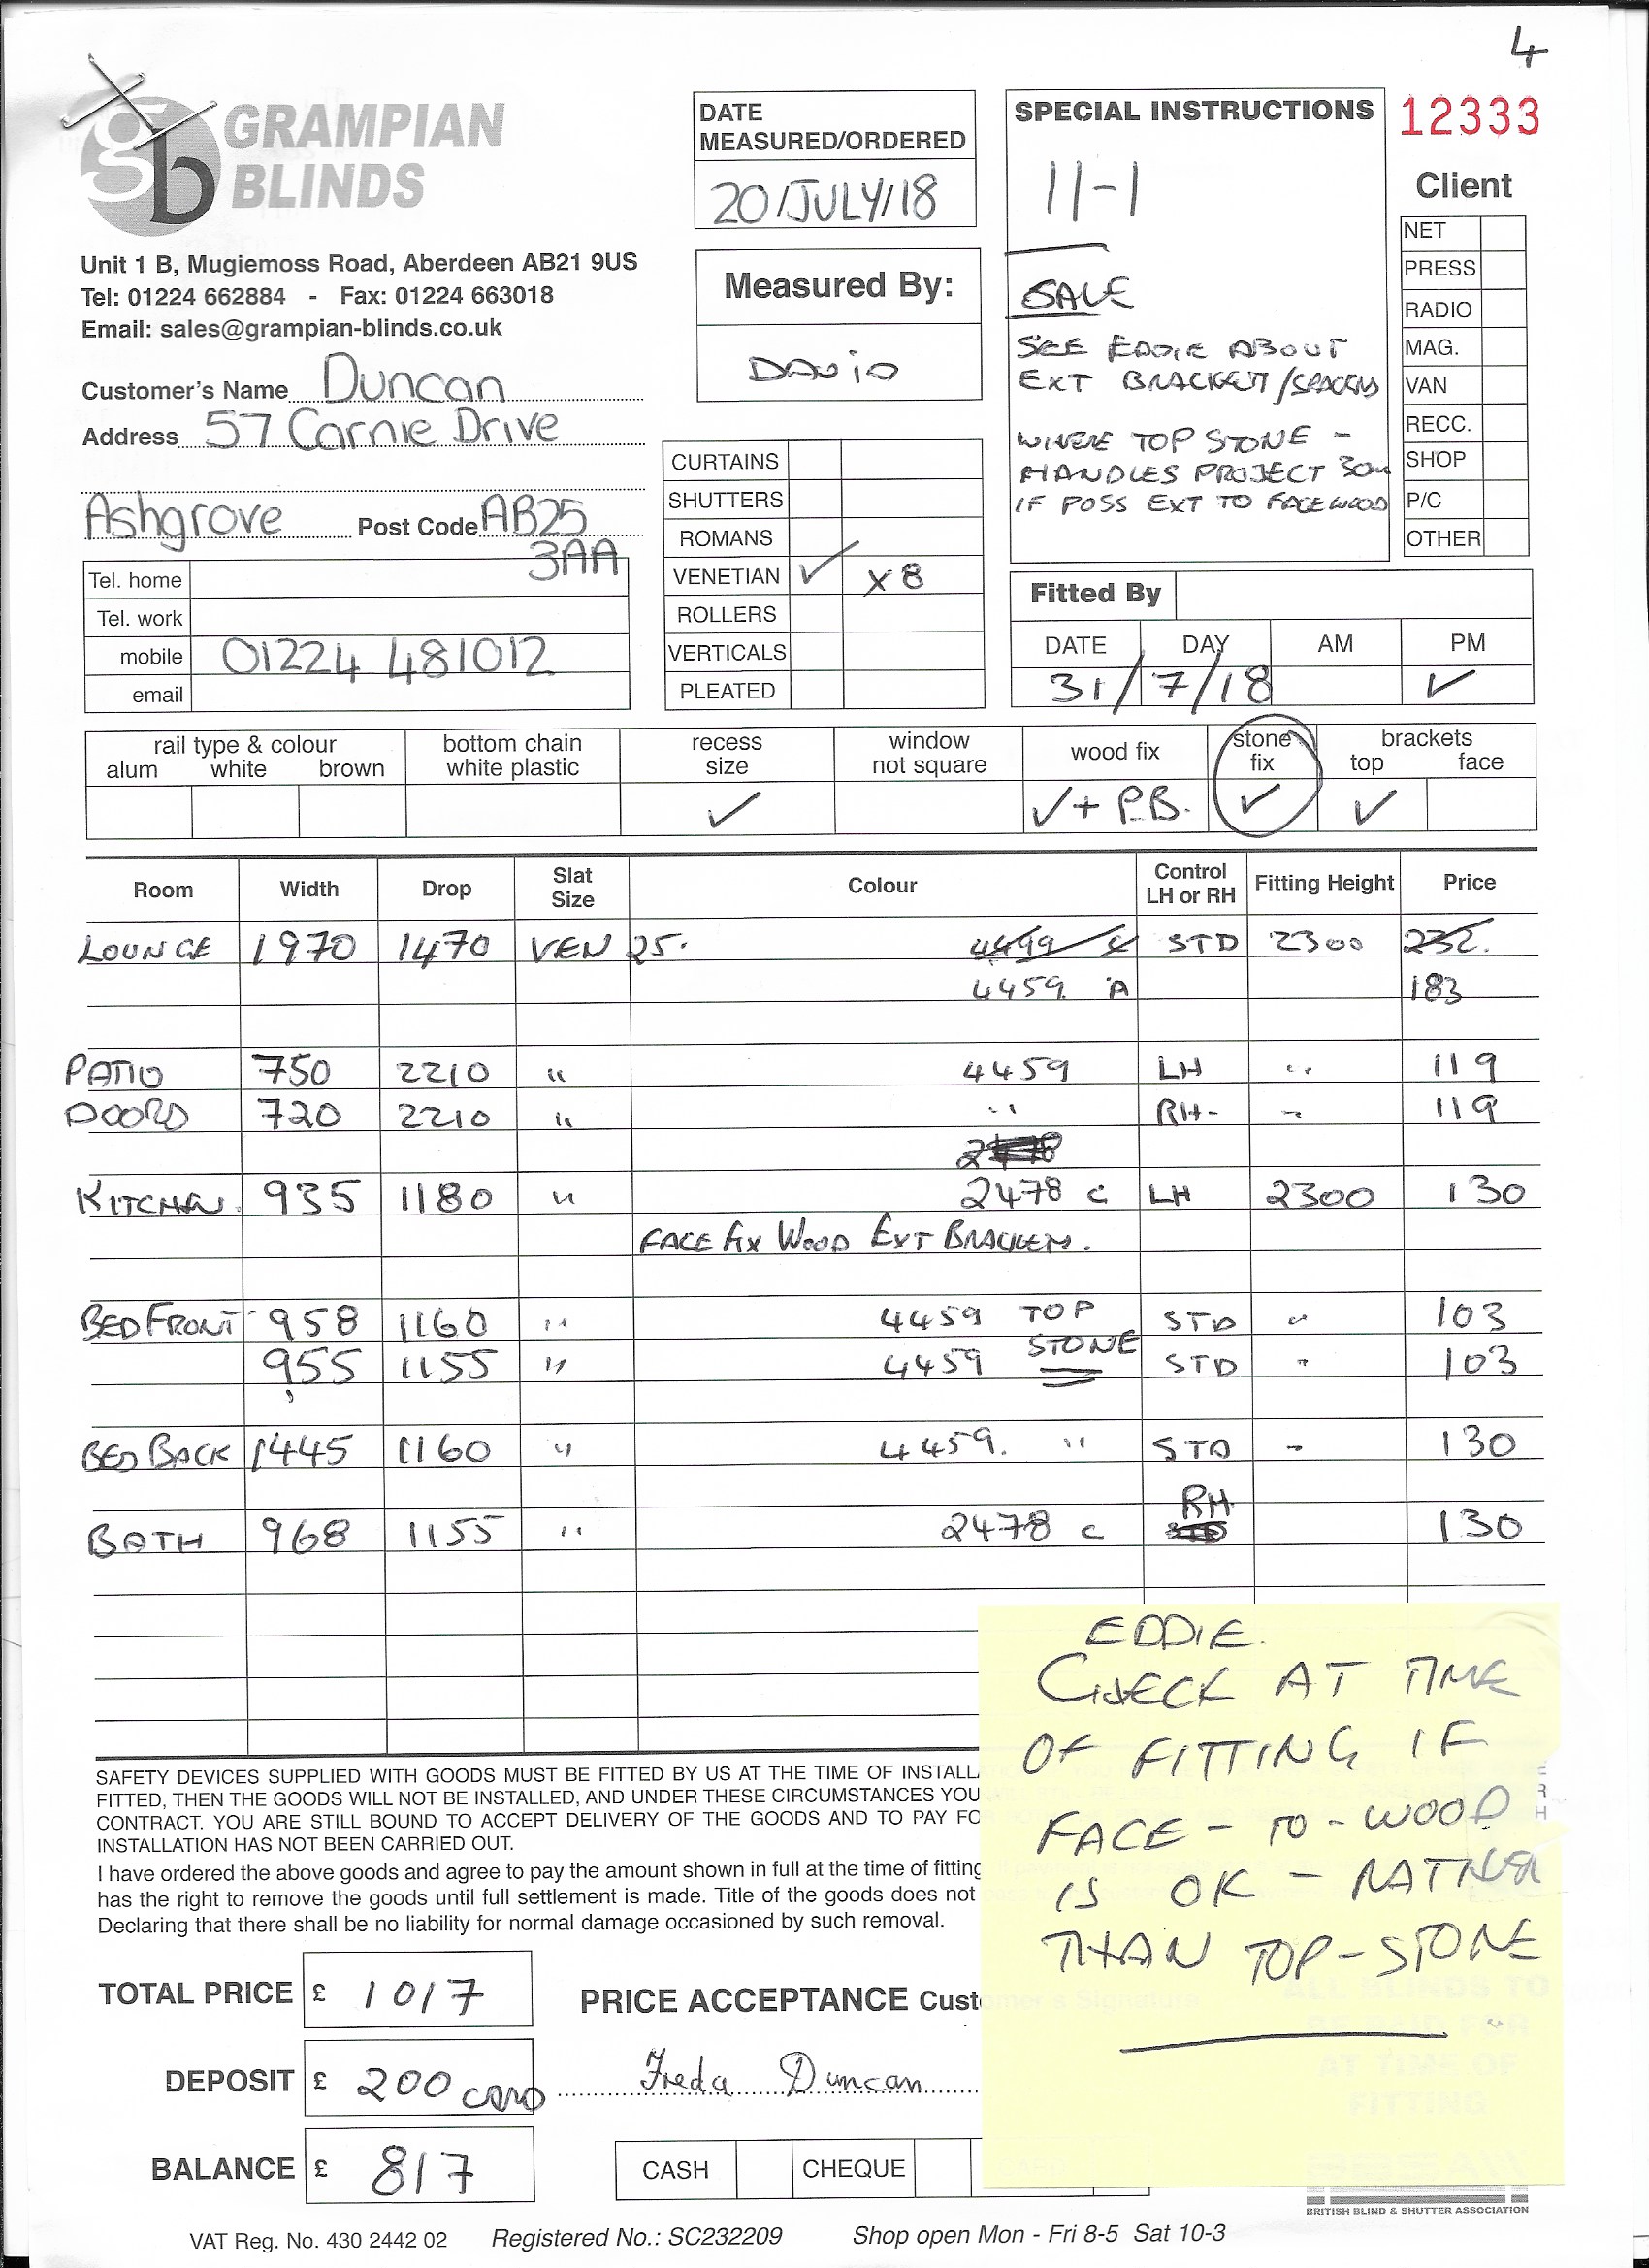 4
GRAMPIAN
BLINDS
Unit 1 B, Mugiemoss Road, Aberdeen AB21 9US
Tel: 01224 662884 - Fax: 01224 663018
Email: sales@grampian-blinds.co.uk
Customer's Name Duncan
Address 57 Carnie Drive
Ashgrove Post Code AB25
3AA
Tel. home
Tel. work
mobile 01224 481012
email
DATE
MEASURED/ORDERED
20/JULY/18
Measured By:
DAVID
CURTAINS
SHUTTERS
ROMANS
VENETIAN ✓ x 8
ROLLERS
VERTICALS
PLEATED
SPECIAL INSTRUCTIONS
11-1
SALE
SEE EDDIE ABOUT
EXT BRACKET/SPACERS
WHERE TOP STONE -
HANDLES PROJECT 30m
IF POSS EXT TO FACE WOOD
12333
Client
NET
PRESS
RADIO
MAG.
VAN
RECC.
SHOP
P/C
OTHER
Fitted By
DATE DAY AM PM
31/7/18 ✓
rail type & colour
alum white brown
bottom chain
white plastic
recess
size
✓
window
not square
wood fix
✓ + P.B.
stone
fix
✓
brackets
top face
✓
Room Width Drop Slat Size Colour Control LH or RH Fitting Height Price
LOUNGE 1970 1470 VEN 25. 4499 C STD 2300 232.
4459 A 183
PATIO 750 2210 " 4459 LH " 119
DOORS 720 2210 " " RH - " 119
KITCHEN 935 1180 " 2478 C LH 2300 130
FACE FIX WOOD EXT BRACKETS.
BED FRONT 958 1160 " 4459 TOP STD " 103
955 1155 " 4459 STONE STD " 103
BED BACK 1445 1160 " 4459. " STD " 130
RH
BATH 968 1155 " 2478 C 130
EDDIE.
CHECK AT TIME
OF FITTING IF
FACE - TO - WOOD
IS OK - RATHER
THAN TOP - STONE
SAFETY DEVICES SUPPLIED WITH GOODS MUST BE FITTED BY US AT THE TIME OF INSTALL
FITTED, THEN THE GOODS WILL NOT BE INSTALLED, AND UNDER THESE CIRCUMSTANCES YOU
CONTRACT. YOU ARE STILL BOUND TO ACCEPT DELIVERY OF THE GOODS AND TO PAY FO
INSTALLATION HAS NOT BEEN CARRIED OUT.
I have ordered the above goods and agree to pay the amount shown in full at the time of fitting
has the right to remove the goods until full settlement is made. Title of the goods does not
Declaring that there shall be no liability for normal damage occasioned by such removal.
TOTAL PRICE £ 1017
PRICE ACCEPTANCE Customer's Signature
ALL BLINDS TO
BE PAID FOR
AT TIME OF
FITTING
DEPOSIT £ 200 CARD
Freda Duncan
BALANCE £ 817
CASH CHEQUE CARD
BRITISH BLIND & SHUTTER ASSOCIATION
VAT Reg. No. 430 2442 02 Registered No.: SC232209 Shop open Mon - Fri 8-5 Sat 10-3